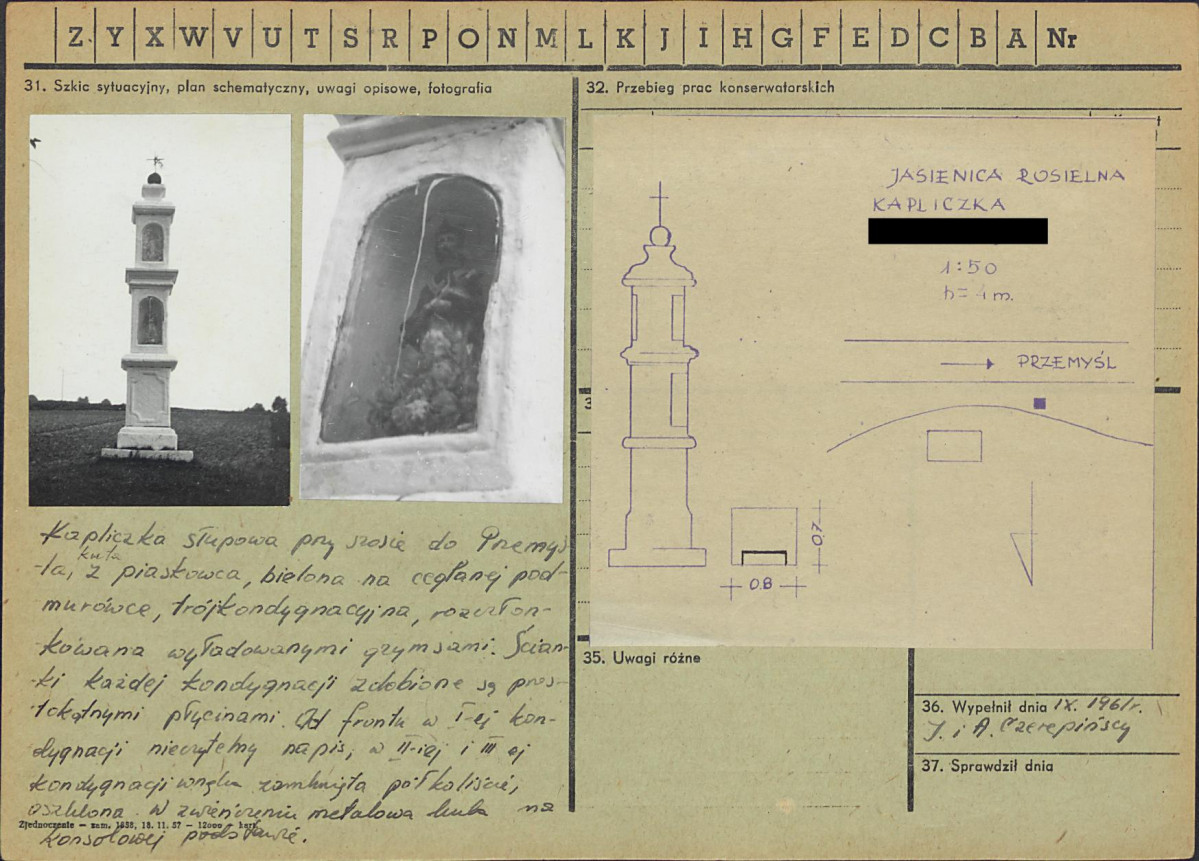 Z Y X W V U T S R P O N M L K J I H G F E D C B A Nr
31. Szkic sytuacyjny, plan schematyczny, uwagi opisowe, fotografia
Kapliczka słupowa przy szosie do Przemyś-
-la, kuta z piaskowca, bielona na ceglanej pod-
murówce, trójkondygnacyjna, rozczłon-
kowana wyładowanymi gzymsami. Ścian-
ki każdej kondygnacji zdobione są pros-
tokątnymi płycinami. Od frontu w I-ej kon-
dygnacji nieczytelny napis, w II-iej i III ej
kondygnacji wnęka zamknięta półkoliście,
oszklona. W zwieńczeniu metalowa kula na
konsolowej podstawie.
Zjednoczenie — zam. 1838, 18. 11. 57 — 12000 kart.
32. Przebieg prac konserwatorskich
JASIENICA ROSIELNA
KAPLICZKA
1:50
h = 4 m.
PRZEMYŚL
0.7
0.8
35. Uwagi różne
36. Wypełnił dnia IX. 1961r.
J. i A. Czerepińscy
37. Sprawdził dnia